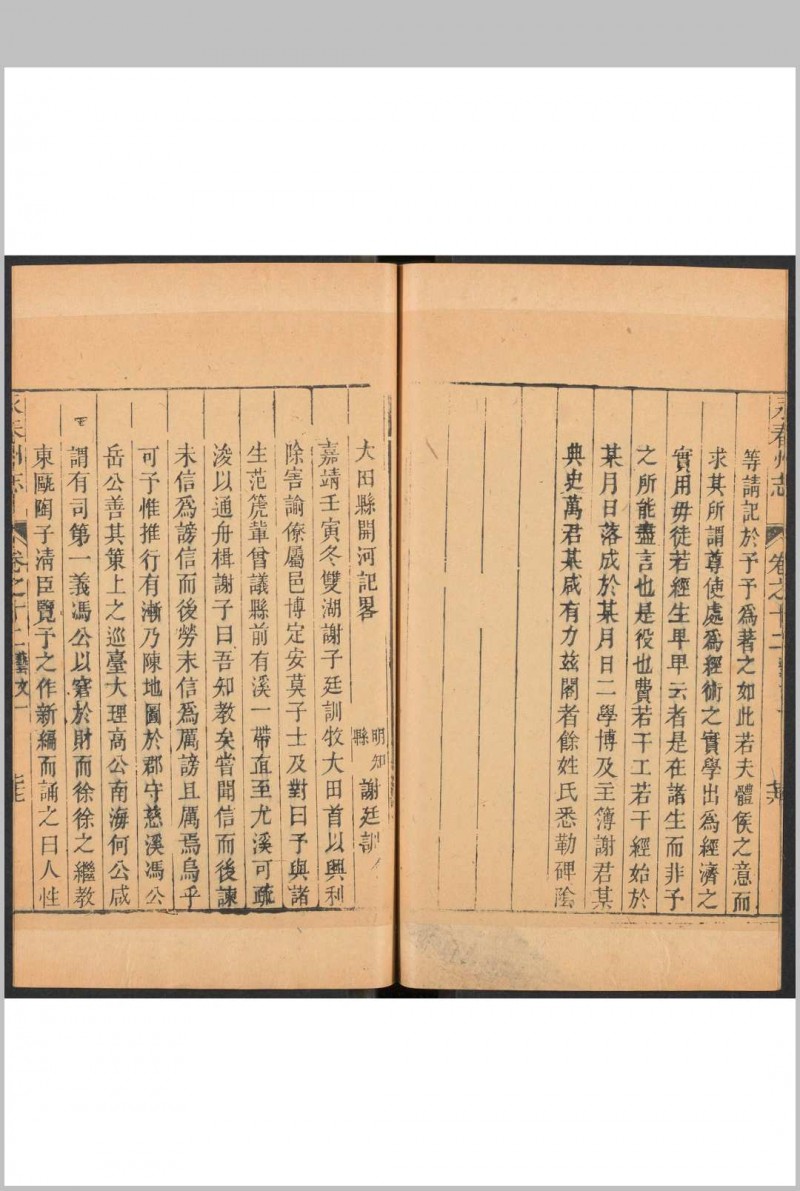 永春州志
卷之十二
等請記於予予為著之如此若夫體侯之意而
求其所謂尊使處為經術之實學出為經濟之
實用毋徒若經生早甲云者是在諸生而非予
之所能盡言也是役也費若干工若干經始於
某月日落成於某月日二學博及主簿謝君某
典史萬君某咸有力兹閣者餘姓氏悉勒碑陰
大田縣開河記畧
明知縣
謝廷訓
嘉靖壬寅冬雙湖謝子廷訓牧大田首以興利
除害諭僚屬邑博定安莫子士及對曰予與諸
生范箎軰曾議縣前有溪一帶直至尤溪可疏
浚以通舟楫謝子曰吾知教矣嘗聞信而後諫
未信爲謗信而後勞未信爲厲謗且厲焉烏乎
可予惟推行有漸乃陳地圖於郡守慈溪馮公
岳公善其策上之巡臺大理高公南海何公咸
謂有司第一義馮公以窘於財而徐徐之繼教
東甌陶子淸臣覽予之作新編而誦之曰人性
卷之十二
藝文一